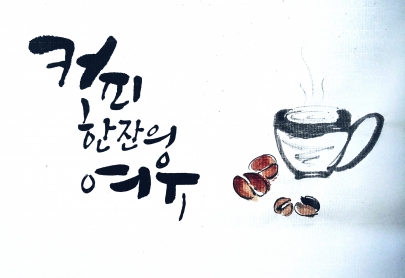 커피
한잔의
여유